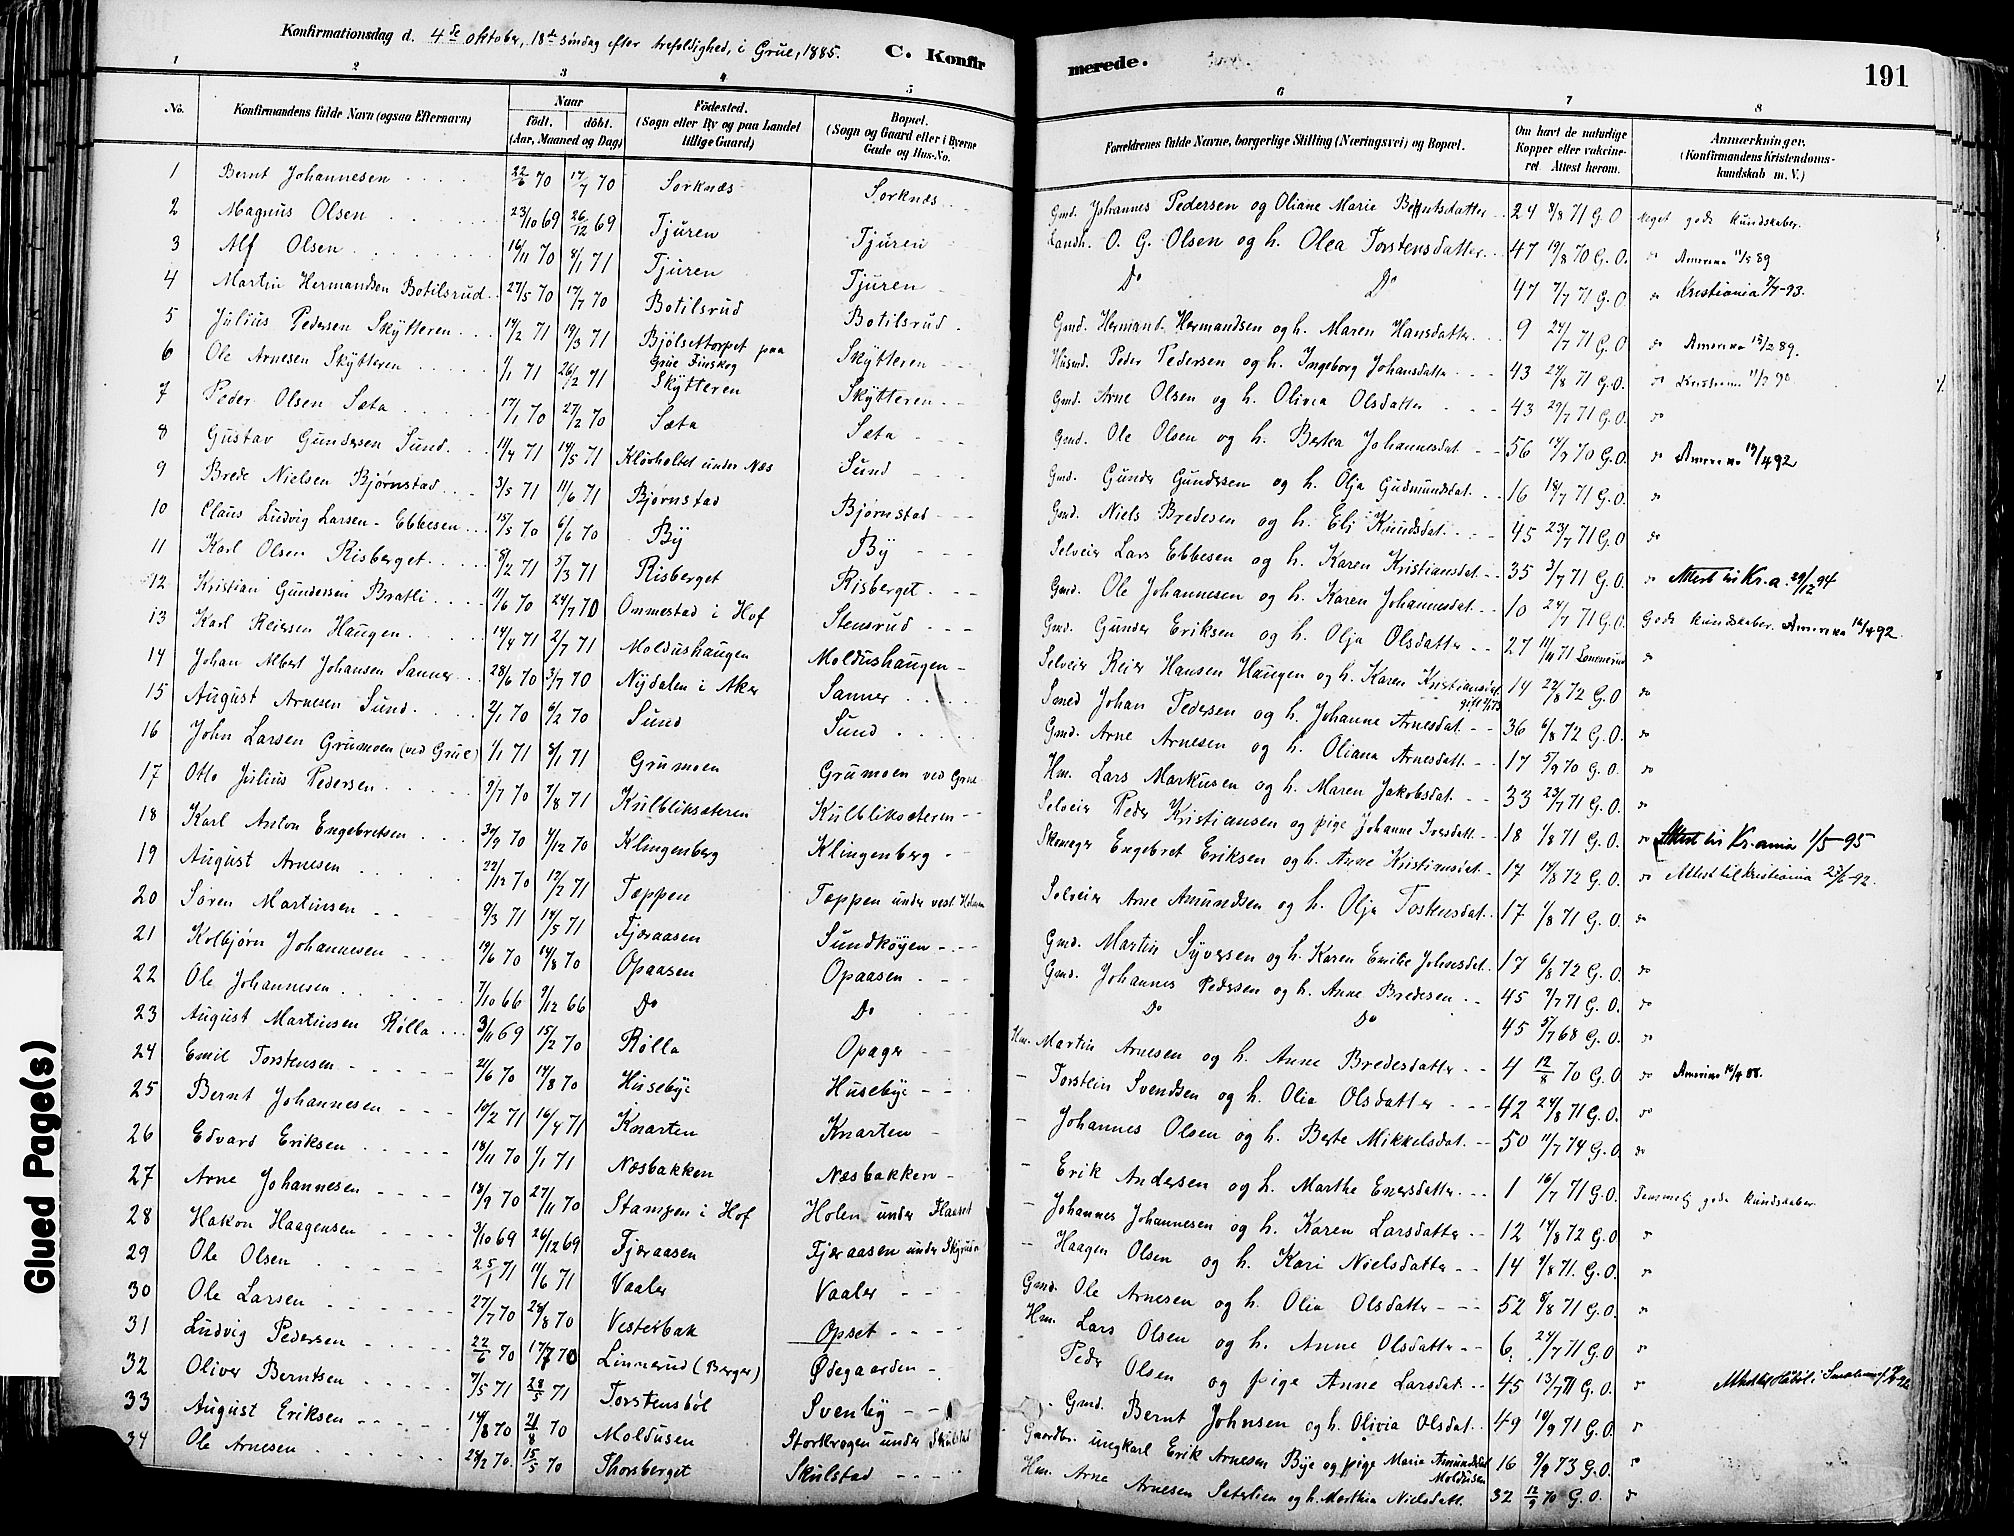 Konfirmationsdag d. 4de oktober, 18de søndag efter trefoldighed, i Grue, 1885. C. Konfirmerede. 191
1 2 3 4 5 6 7 8
No. Konfirmandens fulde Navn (ogsaa Efternavn) Naar født. døbt. (Aar, Maaned og Dag) Fødested. (Sogn eller By og paa Landet tillige Gaard) Bopæl. (Sogn og Gaard eller i Byerne Gade og Hus-No. Forældrenes fulde Navne, borgerlige Stilling (Næringsvei) og Bopæl. Om havt de naturlige Kopper eller vaccineret. Attest herom. Anmærkninger. (Konfirmandens Kristendomskundskab m. V.)
1 Bernt Johannesen 22/6 70 17/7 70 Sorknæs Sorknæs Gmd. Johannes Pedersen og Oliane Marie Berntsdatter 24 8/8 71 G. O meget gode kundskaber.
2 Magnus Olsen 23/10 69 26/12 69 Tjuren Tjuren Landh. O. G. Olsen og h. Olea Torstensdatter 47 19/8 70 G. O. do Amerika 11/5 89
3 Alf Olsen 16/11 70 8/1 71 Tjuren Tjuren Do Do 47 7/7 71 G. O. do Kristiania 7/7-93.
4 Martin Hermandsen Botilsrud 27/5 70 17/7 70 Botilsrud Botilsrud Gmd. Hermand Hermandsen og h. Maren Hansdatter 9 24/7 71 G. O do Amerika 15/2 89.
5 Julius Pedersen Skytteren 14/2 71 19/3 71 Bjølsettorpet paa Grue Finskog Skytteren Husmd. Peder Pedersen og h. Ingeborg Johansdatter 43 24/8 71 G. O. do
6 Ole Arnesen Skytteren 1/1 71 26/2 71 Skytteren Skytteren Gmd. Arne Olsen og h. Olivia Olsdatter 43 29/7 71 G. O. do
7 Peder Olsen Sæta 17/1 70 27/2 70 Sæta Sæta Gmd. Ole Olsen og h. Bertea Johannesdat 56 14/7 70 G. O. do Amerika 19/4 92
8 Gustav Gundersen Sund 11/4 71 14/5 71 Kløvholtet under Næs Sund Gmd. Gunder Gundersen og h. Olja Gudmundsdat. 16 18/7 71 G. O. do
9 Brede Nielsen Bjørnstad 3/5 71 11/6 71 Bjørnstad Bjørnstad Gmd. Niels Bredesen og h. Eli Knudsdat. 45 23/7 71 G. O do
10 Claus Ludvig Larsen-Ebbesen 15/5 70 6/6 70 By By Selveier Lars Ebbesen og h. Karen Kristiansdat 35 3/7 71 G. O. do Attest til Kr.a. 29/12 94
11 Karl Olsen Risberget 8/2 71 5/3 71 Risberget Risberget Gmd. Ole Johannesen og h. Karen Johannesdat 10 24/7 71 G. O. Gode kundskaber. Amerika 12/4 92
12 Kristian Gundersen Bratli 11/6 70 24/7 70 Ommestad i Hof Stensrud Gmd. Gunder Eriksen og h. Olja Olsdatter 27 11/11 71 do
13 Karl Reiersen Haugen 14/4 71 2/7 71 Moldushaugen Moldushaugen Selveier Reier Hansen Haugen og h. Karen Kristiansdat 14 22/8 72 G. O do
14 Johan Albert Johansen Sanner 28/6 70 3/7 70 Nydalen i Aker Sanner Smed Johan Pedersen og h. Johanne Arnesdat 36 6/8 72 G. O. do
15 August Arnesen Sund 2/1 70 6/2 70 Sund Sund Gmd. Arne Arnesen og h. Oliana Arnesdatt. 17 5/9 70 G. O. do
16 John Larsen Grumoen (ved Grue) 1/1 71 8/1 71 Grumoen Grumoen ved Grue Hm. Lars Markusen og h. Maren Jakobsdat 33 23/7 71 G. O. do
17 Otto Julius Pedersen 9/7 70 7/8 71 Kulbliksæteren Kulbliksæteren Selveier Peder Kristiansen og pige Johanne Iversdatt 18 1/8 71 G. O. do Attest til Kr.ania 1/5-95
18 Karl Anton Engebretsen 30/9 70 4/12 70 Klingenberg Klingenberg Skomager Engebret Eriksen og h. Anne Kristiansdat 17 14/8 72 G. O. do Attest til Kristiania 23/6-92.
19 August Arnesen 22/12 70 12/2 71 Tæppen Tæppen under vest. Selveier Arne Amundsen og h. Olja Tostensdat 17 1/8 71 G. O. do
20 Søren Martinsen 9/3 71 14/5 71 Fjæraasen Sundkøyen Gmd. Martin Syversen og h. Karen Emilie 17 6/8 72 G. O. do
21 Kolbjørn Johannesen 19/6 70 14/8 70 Opaasen Opaasen Gmd. Johannes Pedersen og h. Anne Bredesen 45 7/7 71 G. O. do
22 Ole Johannesen 7/10 66 9/12 66 Do Do Do Do 45 5/7 68 G. O. do
23 August Martinsen Rølla 3/11 69 15/2 70 Rølla Opager Hm. Martin Arnesen og h. Anne Bredesdatter 4 12/8 70 G. O do Amerika 16/4 88.
24 Emil Torstensen 21/6 70 14/8 70 Husebye Husebye Torstein Svendsen og h. Olia Olsdatter 42 24/8 71 G. O. do
25 Bernt Johannesen 10/2 71 16/4 71 Knarten Knarten Johannes Olsen og h. Berte Mikkelsdat. 50 11/7 74 G. O. do
26 Edvard Eriksen 18/11 70 1/1 71 Næsbakken Næsbakken Erik Andersen og h. Marthe Enersdatter 1 16/7 71 G. O. Temmelig gode kundskaber
27 Arne Johannesen 18/9 70 27/11 70 Stampen i Hof Holen under Johannes Johannesen og h. Karen Larsdatter 12 14/8 72 G. O do
28 Hakon Haagensen 3/10 69 26/12 69 Fjæraasen Fjæraasen under Haagen Olsen og h. Kari Nielsdatter 14 9/8 71. G. O. do
29 Ole Olsen 25/1 71 11/6 71 Vaaler Vaaler Gmd. Ole Arnesen og h. Olia Olsdatter 52 8/8 71 G. O. do
30 Ole Larsen 27/7 70 28/8 70 Vesterbak Opset Hm. Lars Olsen og h. Anne Olsdatter 6 24/7 71 G. O do
31 Ludvig Pedersen 22/6 70 17/7 70 Linnerud (Berger) Ødegaarden Peder Olsen og pige Anne Larsdat 45 13/7 71 G. O. do
32 Oliver Berntsen 7/5 71 28/5 71 Torstensbøl Svenby Gmd. Bernt Johnsen og h. Olivia Olsdat. 49 10/9 71 G. O. do
33 August Eriksen 14/8 70 21/8 70 Moldusen Storkrogen under Skulstad Gaardbr. ungkarl Erik Arnesen Bye og pige Marie Amundsdat Moldusen 16 9/9 73 G. O. do
34 Ole Arnesen 24/2 70. 15/5 70 Thorsberget Skulstad Hm. Arne Arnesen Sæterlien og h. Marthea Nielsdatt. 32 12/9 70 G. O. do
Glued Page(s)